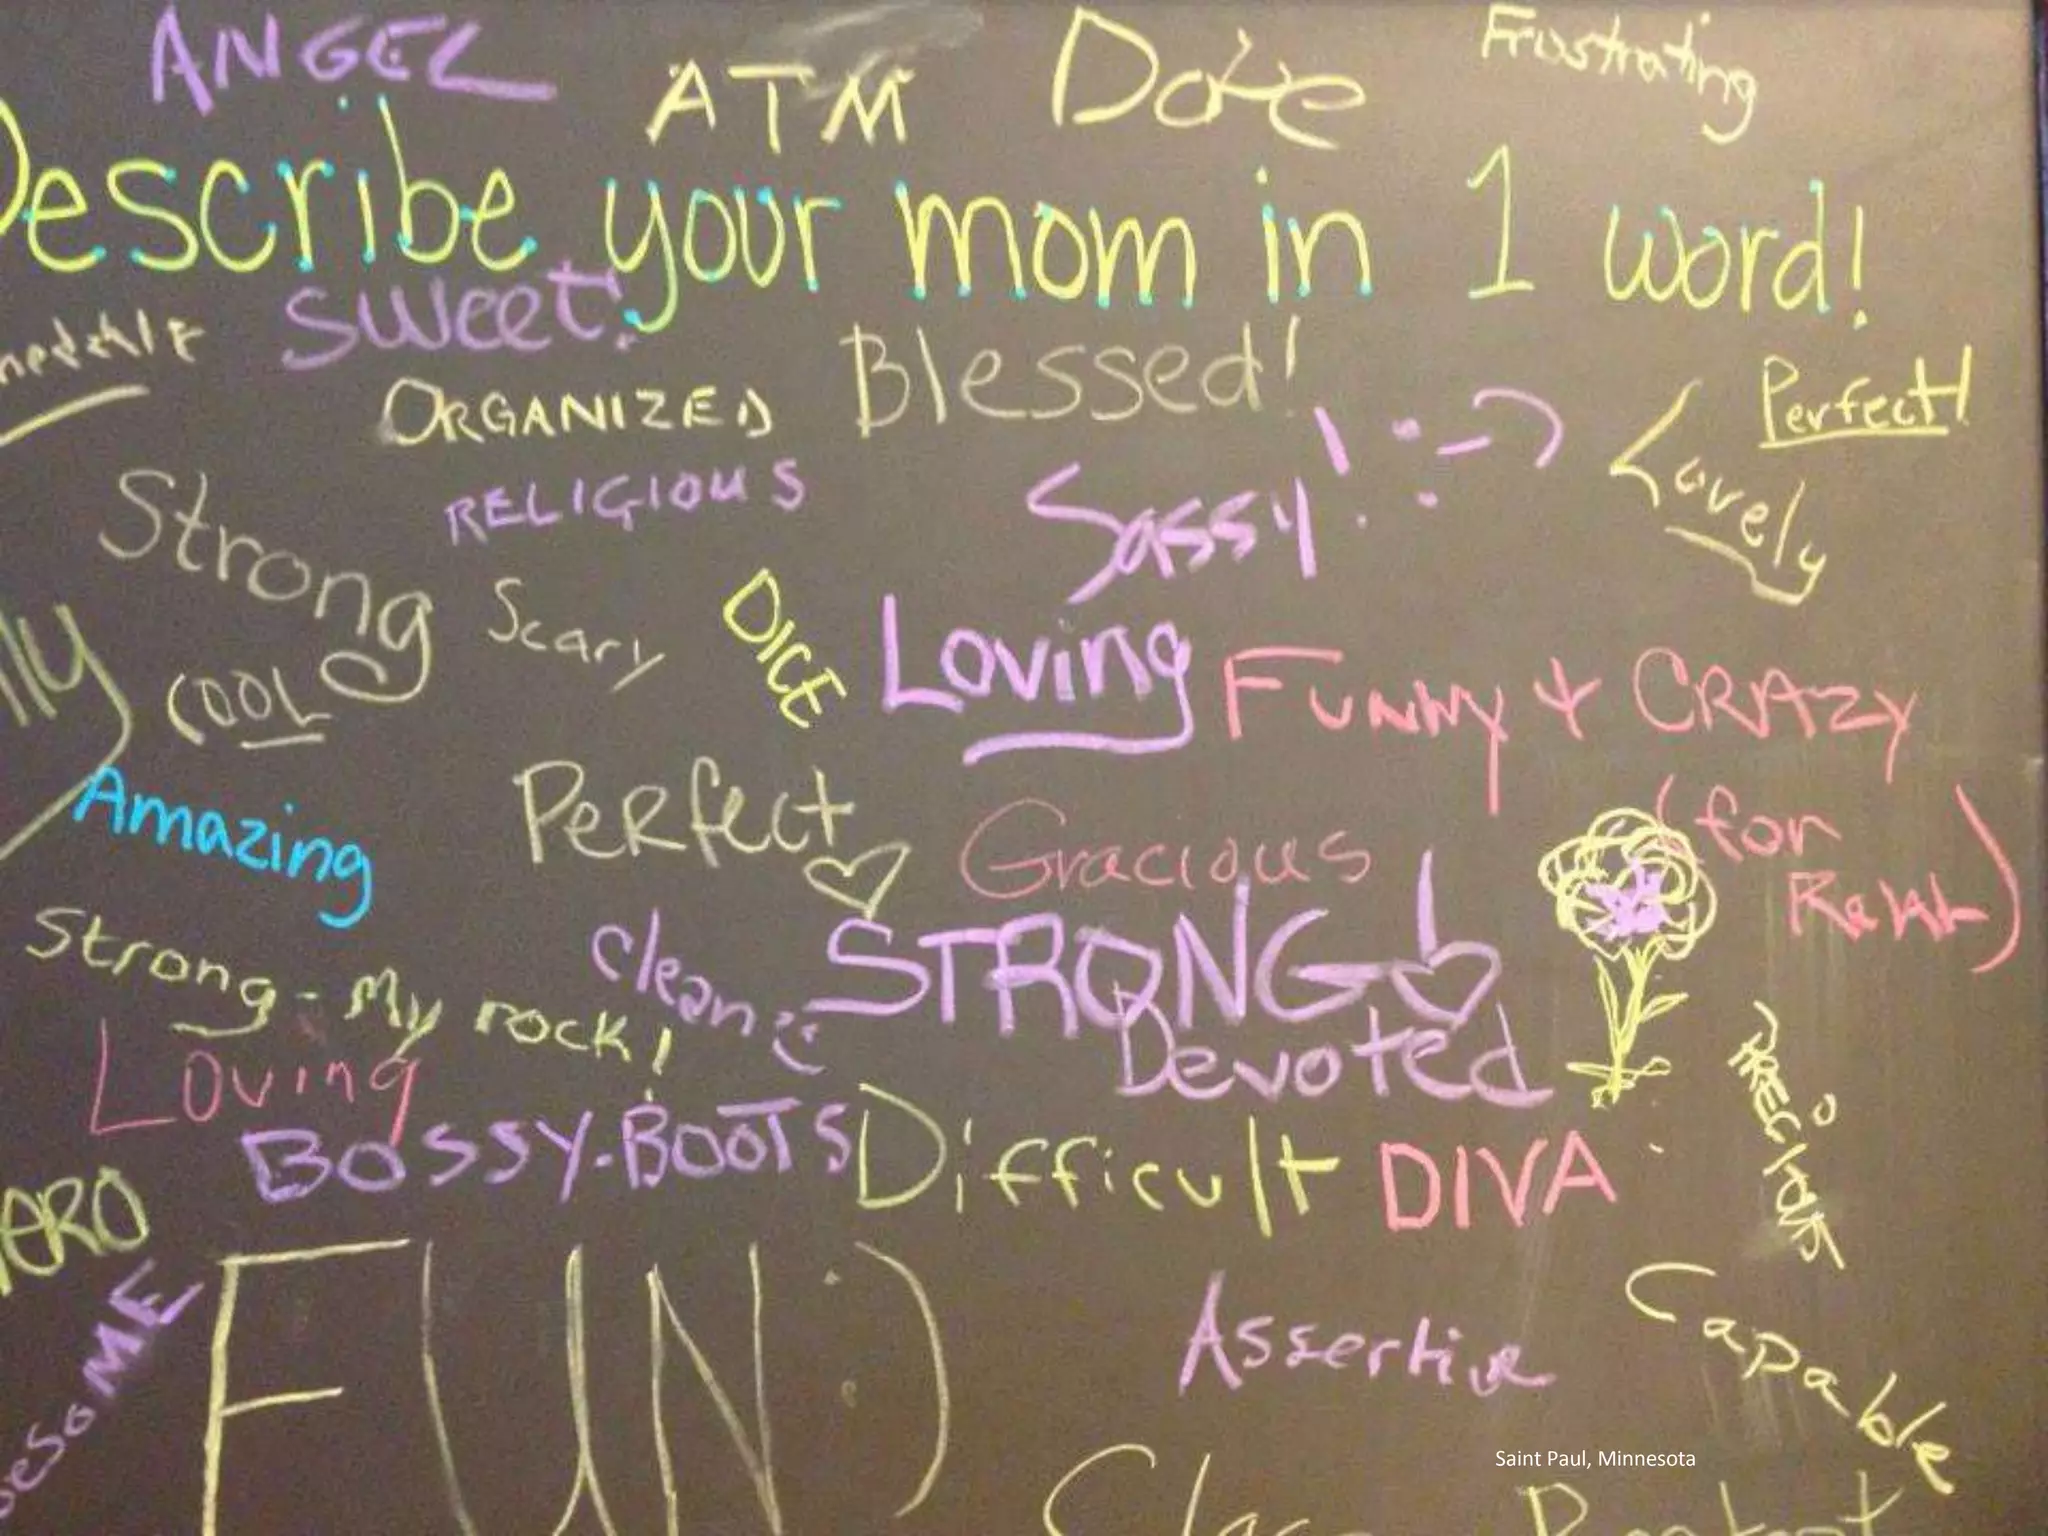 ANGEL
ATM
Frustrating
Describe your mom in 1 word!
Sweet!
Blessed!
Perfect!
ORGANIZED
Lovely
RELIGIOUS
Sassy! :-)
Strong
Scary
DICE
Loving
COOL
FUNNY + CRAZY
(for
REAL)
Amazing
Perfect
Gracious
Strong - My rock!
clean :)
STRONG!
Devoted
Loving
PRECIOUS
BOSSY-BOOTS
Difficult
DIVA
FUN :)
Assertive
Capable
Saint Paul, Minnesota